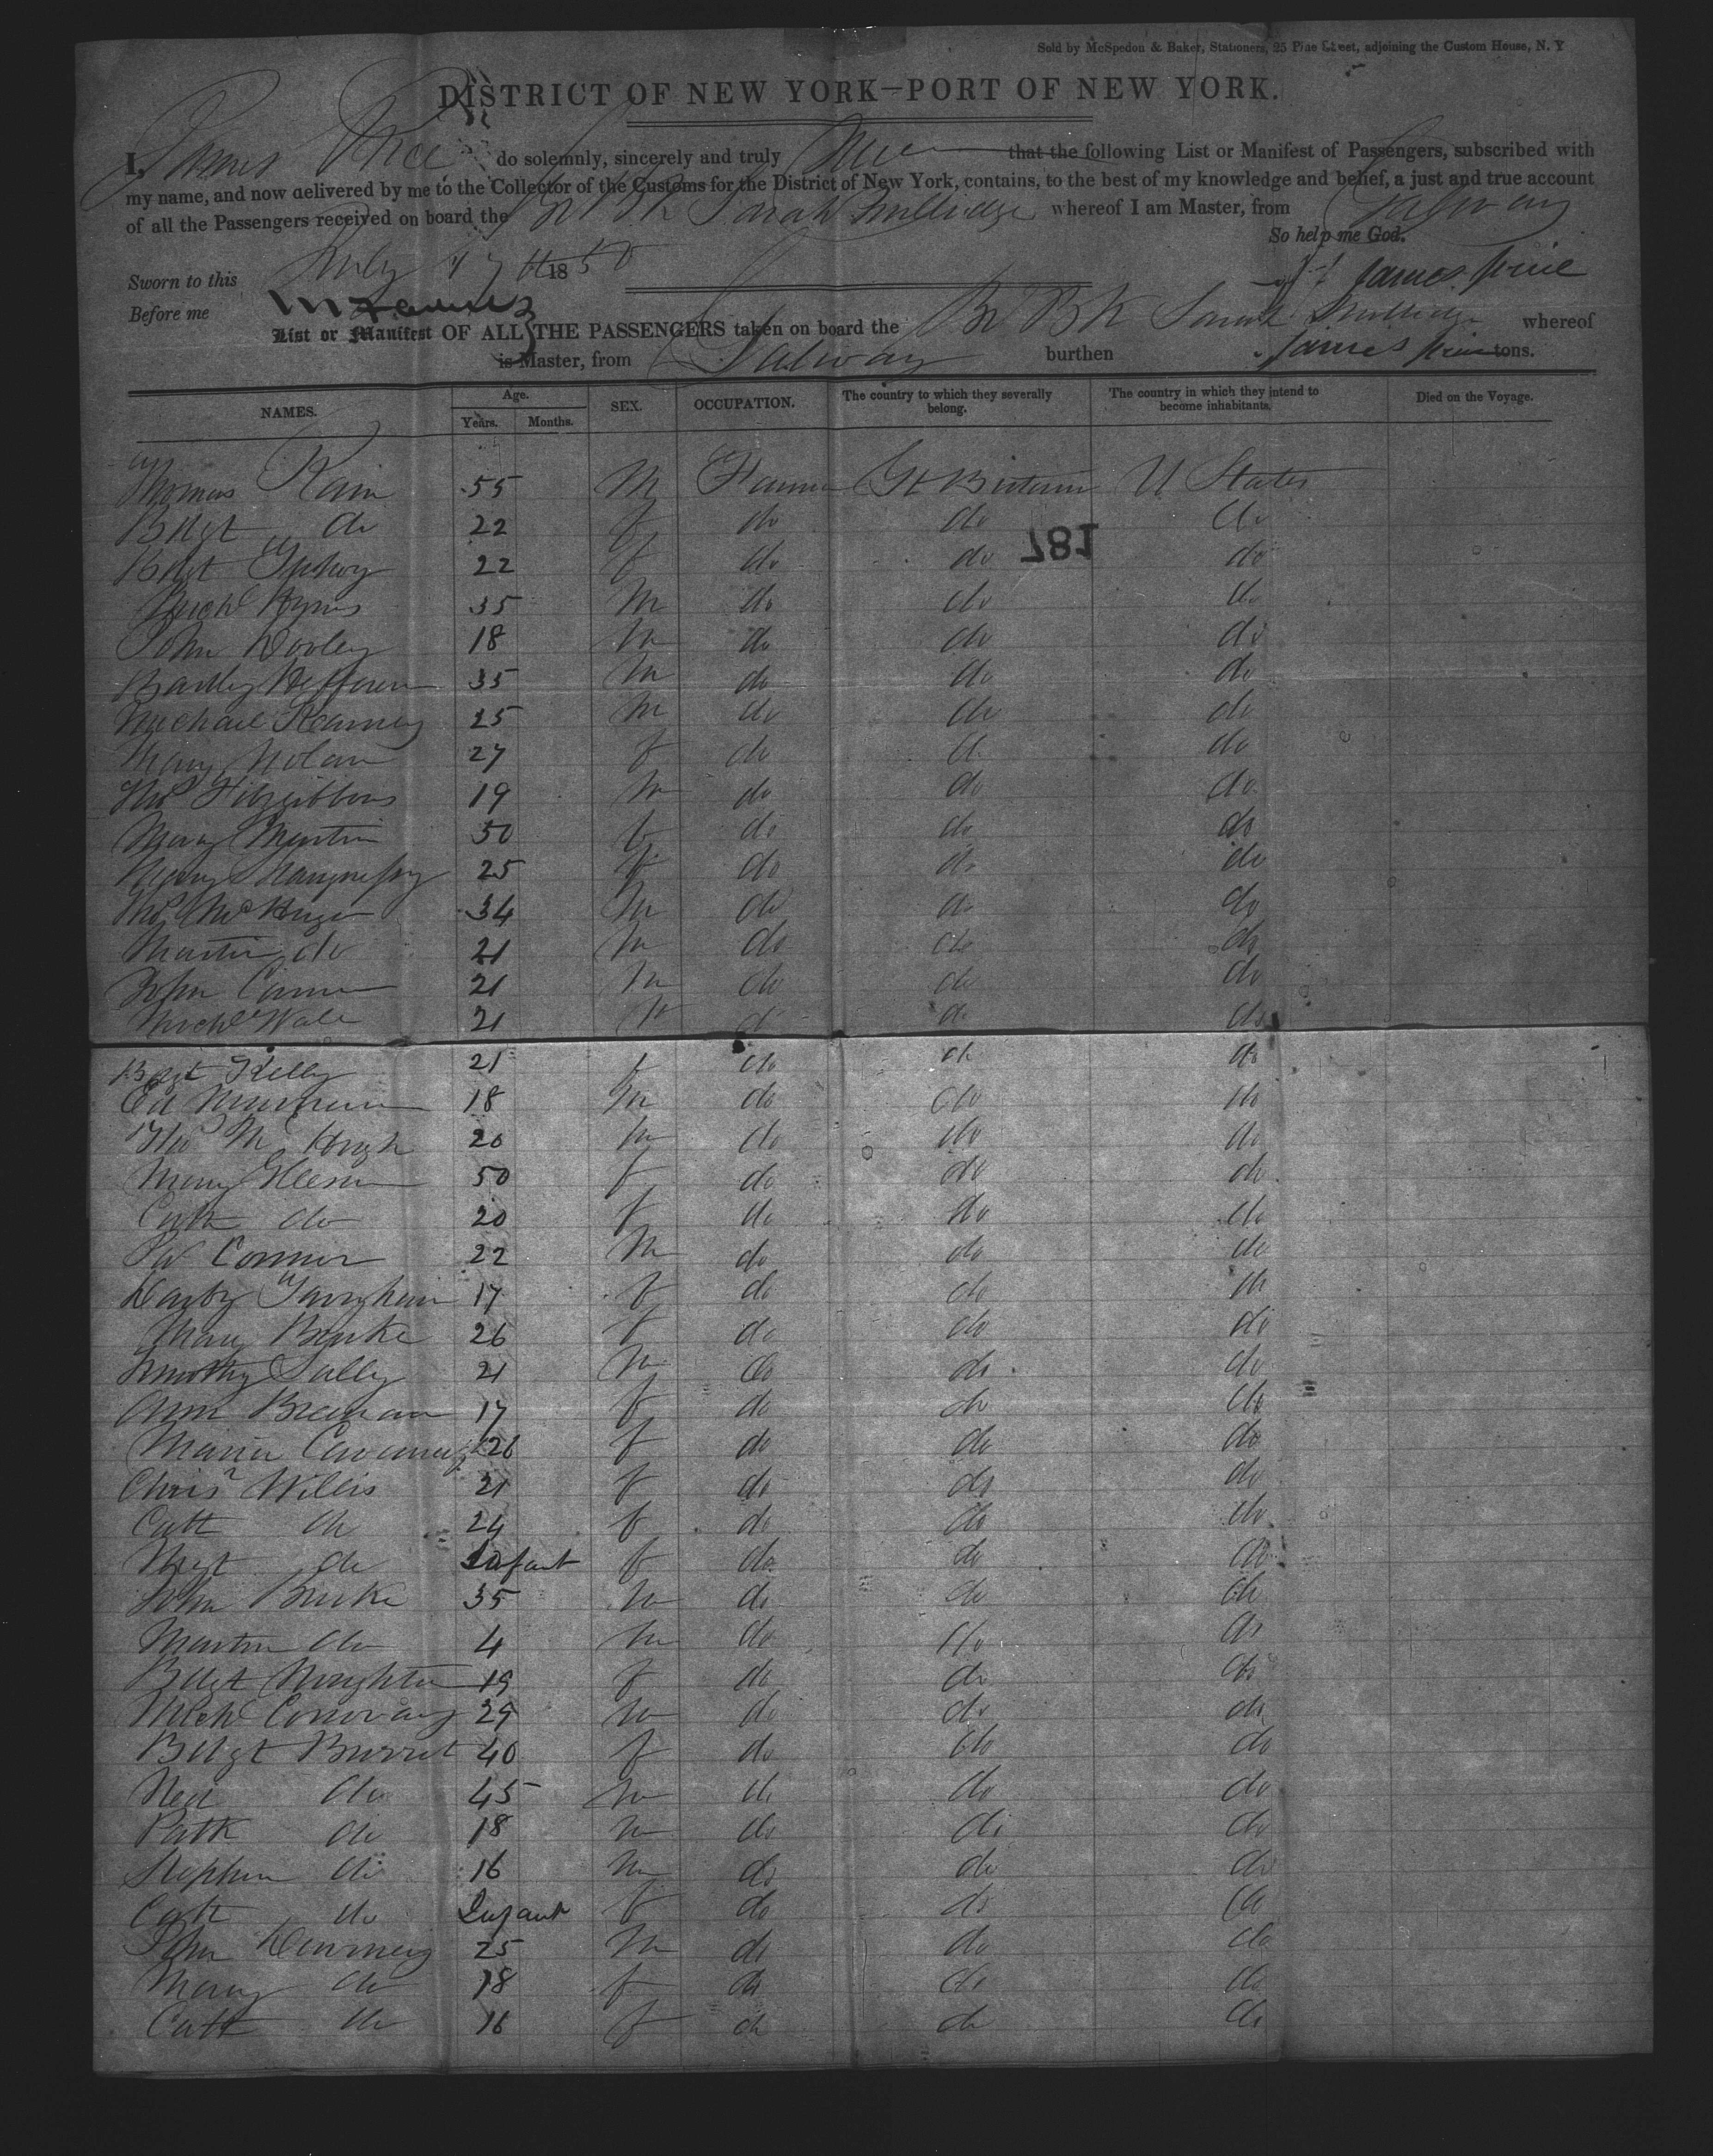 Sold by McSpedon & Baker, Stationers, 25 Pine Street, adjoining the Custom House, N. Y
DISTRICT OF NEW YORK—PORT OF NEW YORK.
I, James do solemnly, sincerely and truly that the following List or Manifest of Passengers, subscribed with
my name, and now delivered by me to the Collector of the Customs for the District of New York, contains, to the best of my knowledge and belief, a just and true account
of all the Passengers received on board the Br Bk Sarah Milledge whereof I am Master, from Galway
So help me God.
Sworn to this July 17th 1850
James
Before me
List or Manifest OF ALL THE PASSENGERS taken on board the Br Bk Sarah Milledge whereof
is Master, from Galway burthen James tons.
NAMES. Age. Years. Months. SEX. OCCUPATION. The country to which they severally belong. The country in which they intend to become inhabitants. Died on the Voyage.
Thomas 55 M Farmer Gt Britain U States
Bdgt do 22 f do do do
781
Bdgt 22 f do do do
Mich Hynes 35 M do do do
John Dooley 18 m do do do
Bartly Heffernan 35 m do do do
Michael Kearney 25 m do do do
Mary Nolan 27 f do do do
Tho Fitzgibbons 19 m do do do
Mary Martin 50 f do do do
25 f do do do
Tho 34 m do do do
Martin do 21 m do do do
John 21 m do do do
Mich Wall 21 m do do do
Bdgt Kelly 21 f do do do
Ed 18 m do do do
Tho McHugh 20 m do do do
Mary Gleeson 50 f do do do
Cath do 20 f do do do
Pat Connor 22 m do do do
Darby 17 f do do do
Mary Burke 26 f do do do
Timothy Lally 21 m do do do
Ann Brennan 17 f do do do
Maria Cavanagh 26 f do do do
Chrisr Willis 21 f do do do
Cath do 24 f do do do
Mgt do Infant f do do do
John Burke 35 m do do do
Martin do 4 m do do do
Bdgt Naughton 19 f do do do
Mich Conoway 29 m do do do
Bdgt Burret 40 f do do do
Ned do 45 m do do do
Patk do 18 m do do do
Stephen do 16 m do do do
Cath do Infant f do do do
John 25 m do do do
Mary do 18 f do do do
Cath do 16 f do do do